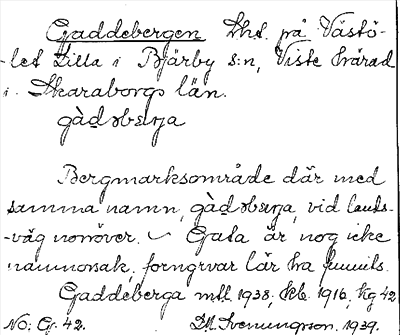 Gaddebergen Ths. på Västö-
-let Lilla i Bjärby s:n, Viste härad
i Skaraborgs län.
Bergmarksområde där med
samma namn, vid lands-
-väg norröver. – Gata är nog icke
namnorsak. forngrvar lär ha funnits.
Gaddeberga mtl 1938, Kb. 1916, hg 42
No: G. 42. D.A. Svenungson. 1939.